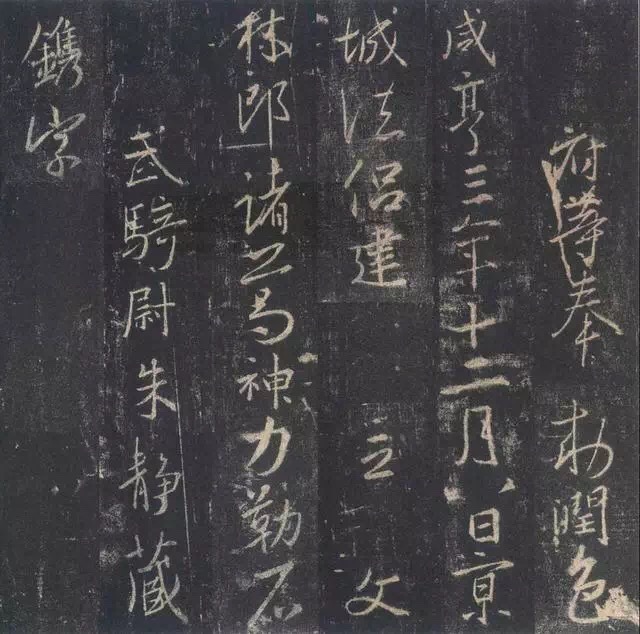 府等奉　勅潤色
咸亨三年十二月八日京
城法侶建　立　文
林郎諸葛神力勒石
武騎尉朱靜藏
鐫字